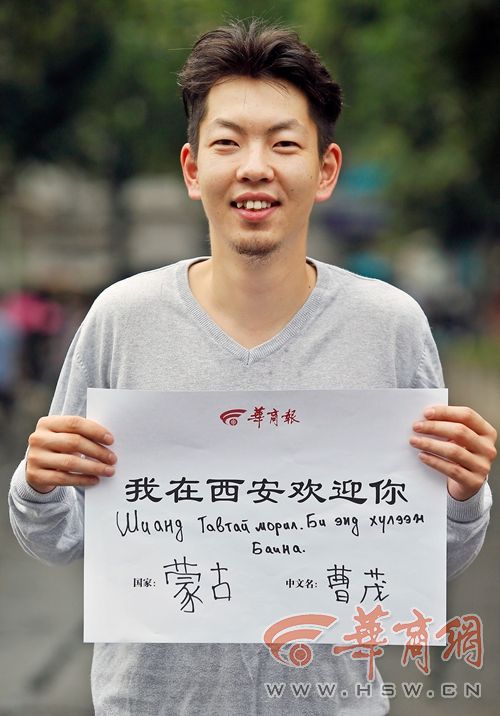 華商報
我在西安欢迎你
Шианд Тавтай морил. Би энд хүлээж
Байна.
国家: 蒙古 中文名: 曹茂
華商網
www.HSW.CN